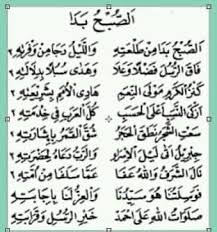 اَلصُّبْحُ بَدَا
اَلصُّبْحُ بَدَا مِنْ طَلْعَتِهِ وَاللَّيْلُ دَجَا مِنْ وَفْرَتِهِ ٢
فَاقَ الرُّسُلَ فَضْلًا وَعَلَا وَهَدَى سُبُلًا بِدَلَالَتِهِ ٢
كَنْزُ الْكَرَمِ مَوْلَى النِّعَمِ هَادِى الْأُمَمِ بِشَرِيعَتِهِ ٢
اَزْكَى النَّسَبِ اَعْلَى الْحَسَبِ كُلُّ الْعَرَبِ فِى خِدْمَتِهِ ٢
سَعَتِ الشَّجَرُ نَطَقَ الْحَجَرُ شُقَّ الْقَمَرُ بِإِشَارَتِهِ ٢
جِبْرِيلُ أَتَى لَيْلَ الْأَسْرَارِ وَالرَّبُّ دَعَاهُ لِحَضْرَتِهِ ٢
نَالَ الشَّرَفَ وَاللهُ عَفَا عَمَّا سَلَفَا مِنْ أُمَّتِهِ ٢
فَوَسِيلَتُنَا هُوَ سَيِّدُنَا وَالْعِزُّ لَنَا بِإِجَابَتِهِ ٢
صَلَوَاتُ اللهِ عَلَى أَحْمَدَ خَيْرِ الرُّسُلِ وَقَرَابَتِهِ ٢